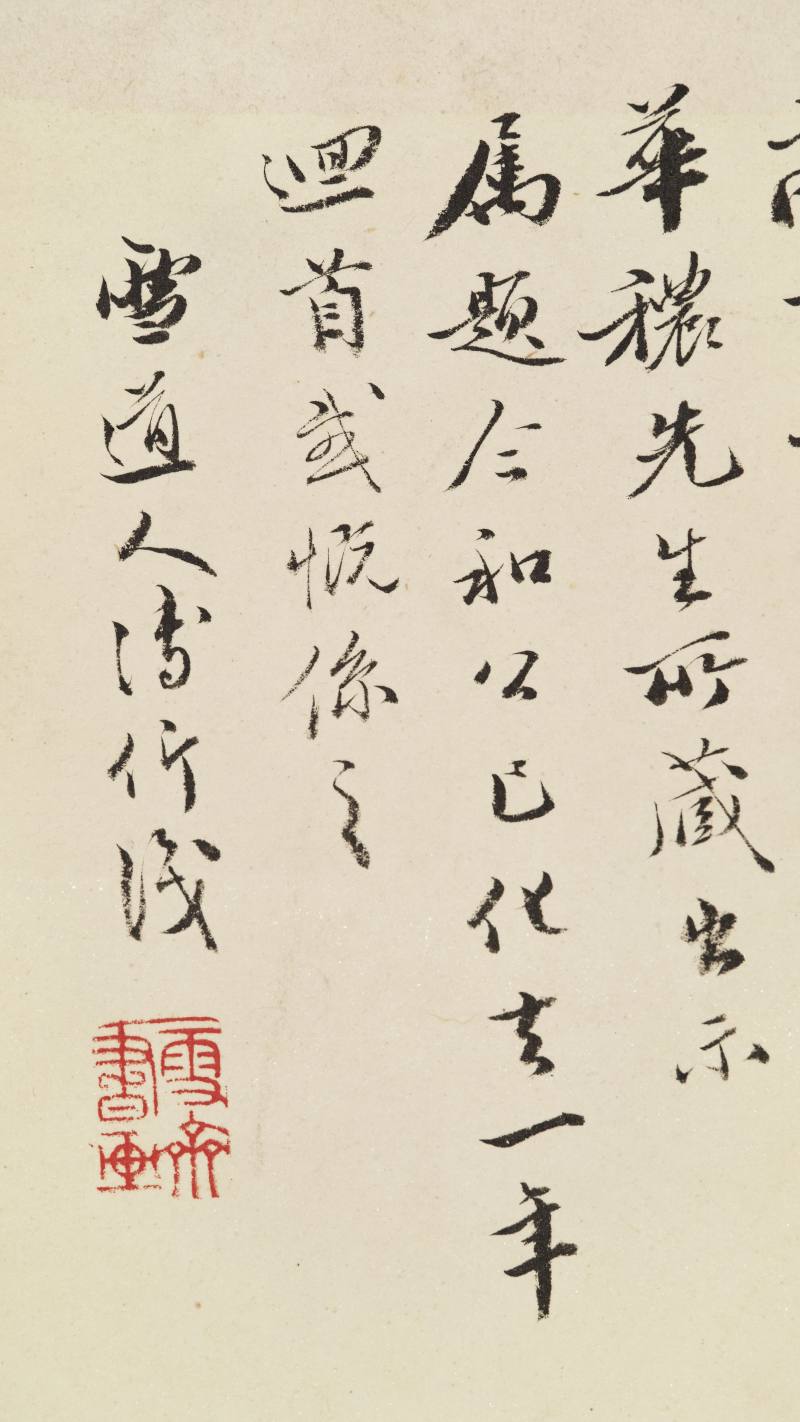 華穠先生所藏出示
属題今和公已化去一年
迴首感慨係之
雪道人溥伒識
雪齋書画